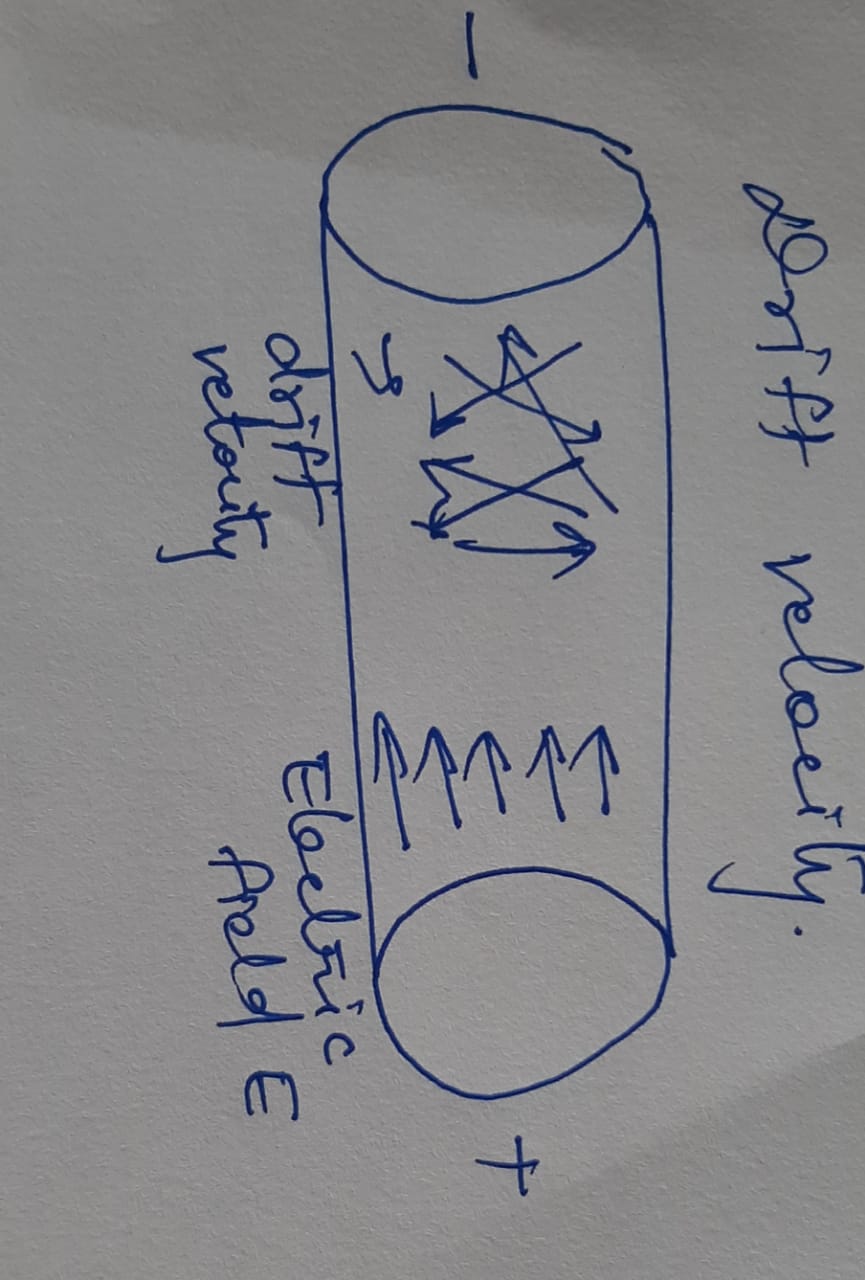 Drift velocity.
-
+
drift
velocity
Electric
field E